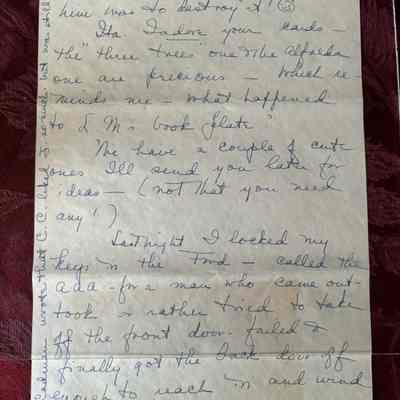 here was to destroy it!
Ita I adore your cards –
the "three trees" one & the Alfreda
one are precious – which re-
minds me – what happened
to L M's book plate?
We have a couple of cute
ones I'll send you later for
ideas – (not that you need
any!)
Last night I locked my
keys in the Ford – called the
AAA – for a man who came out –
took or rather tried to take
off the front door – failed &
finally got the back door off
enough to reach in and wind
wrote that C.C. liked it so much but was still